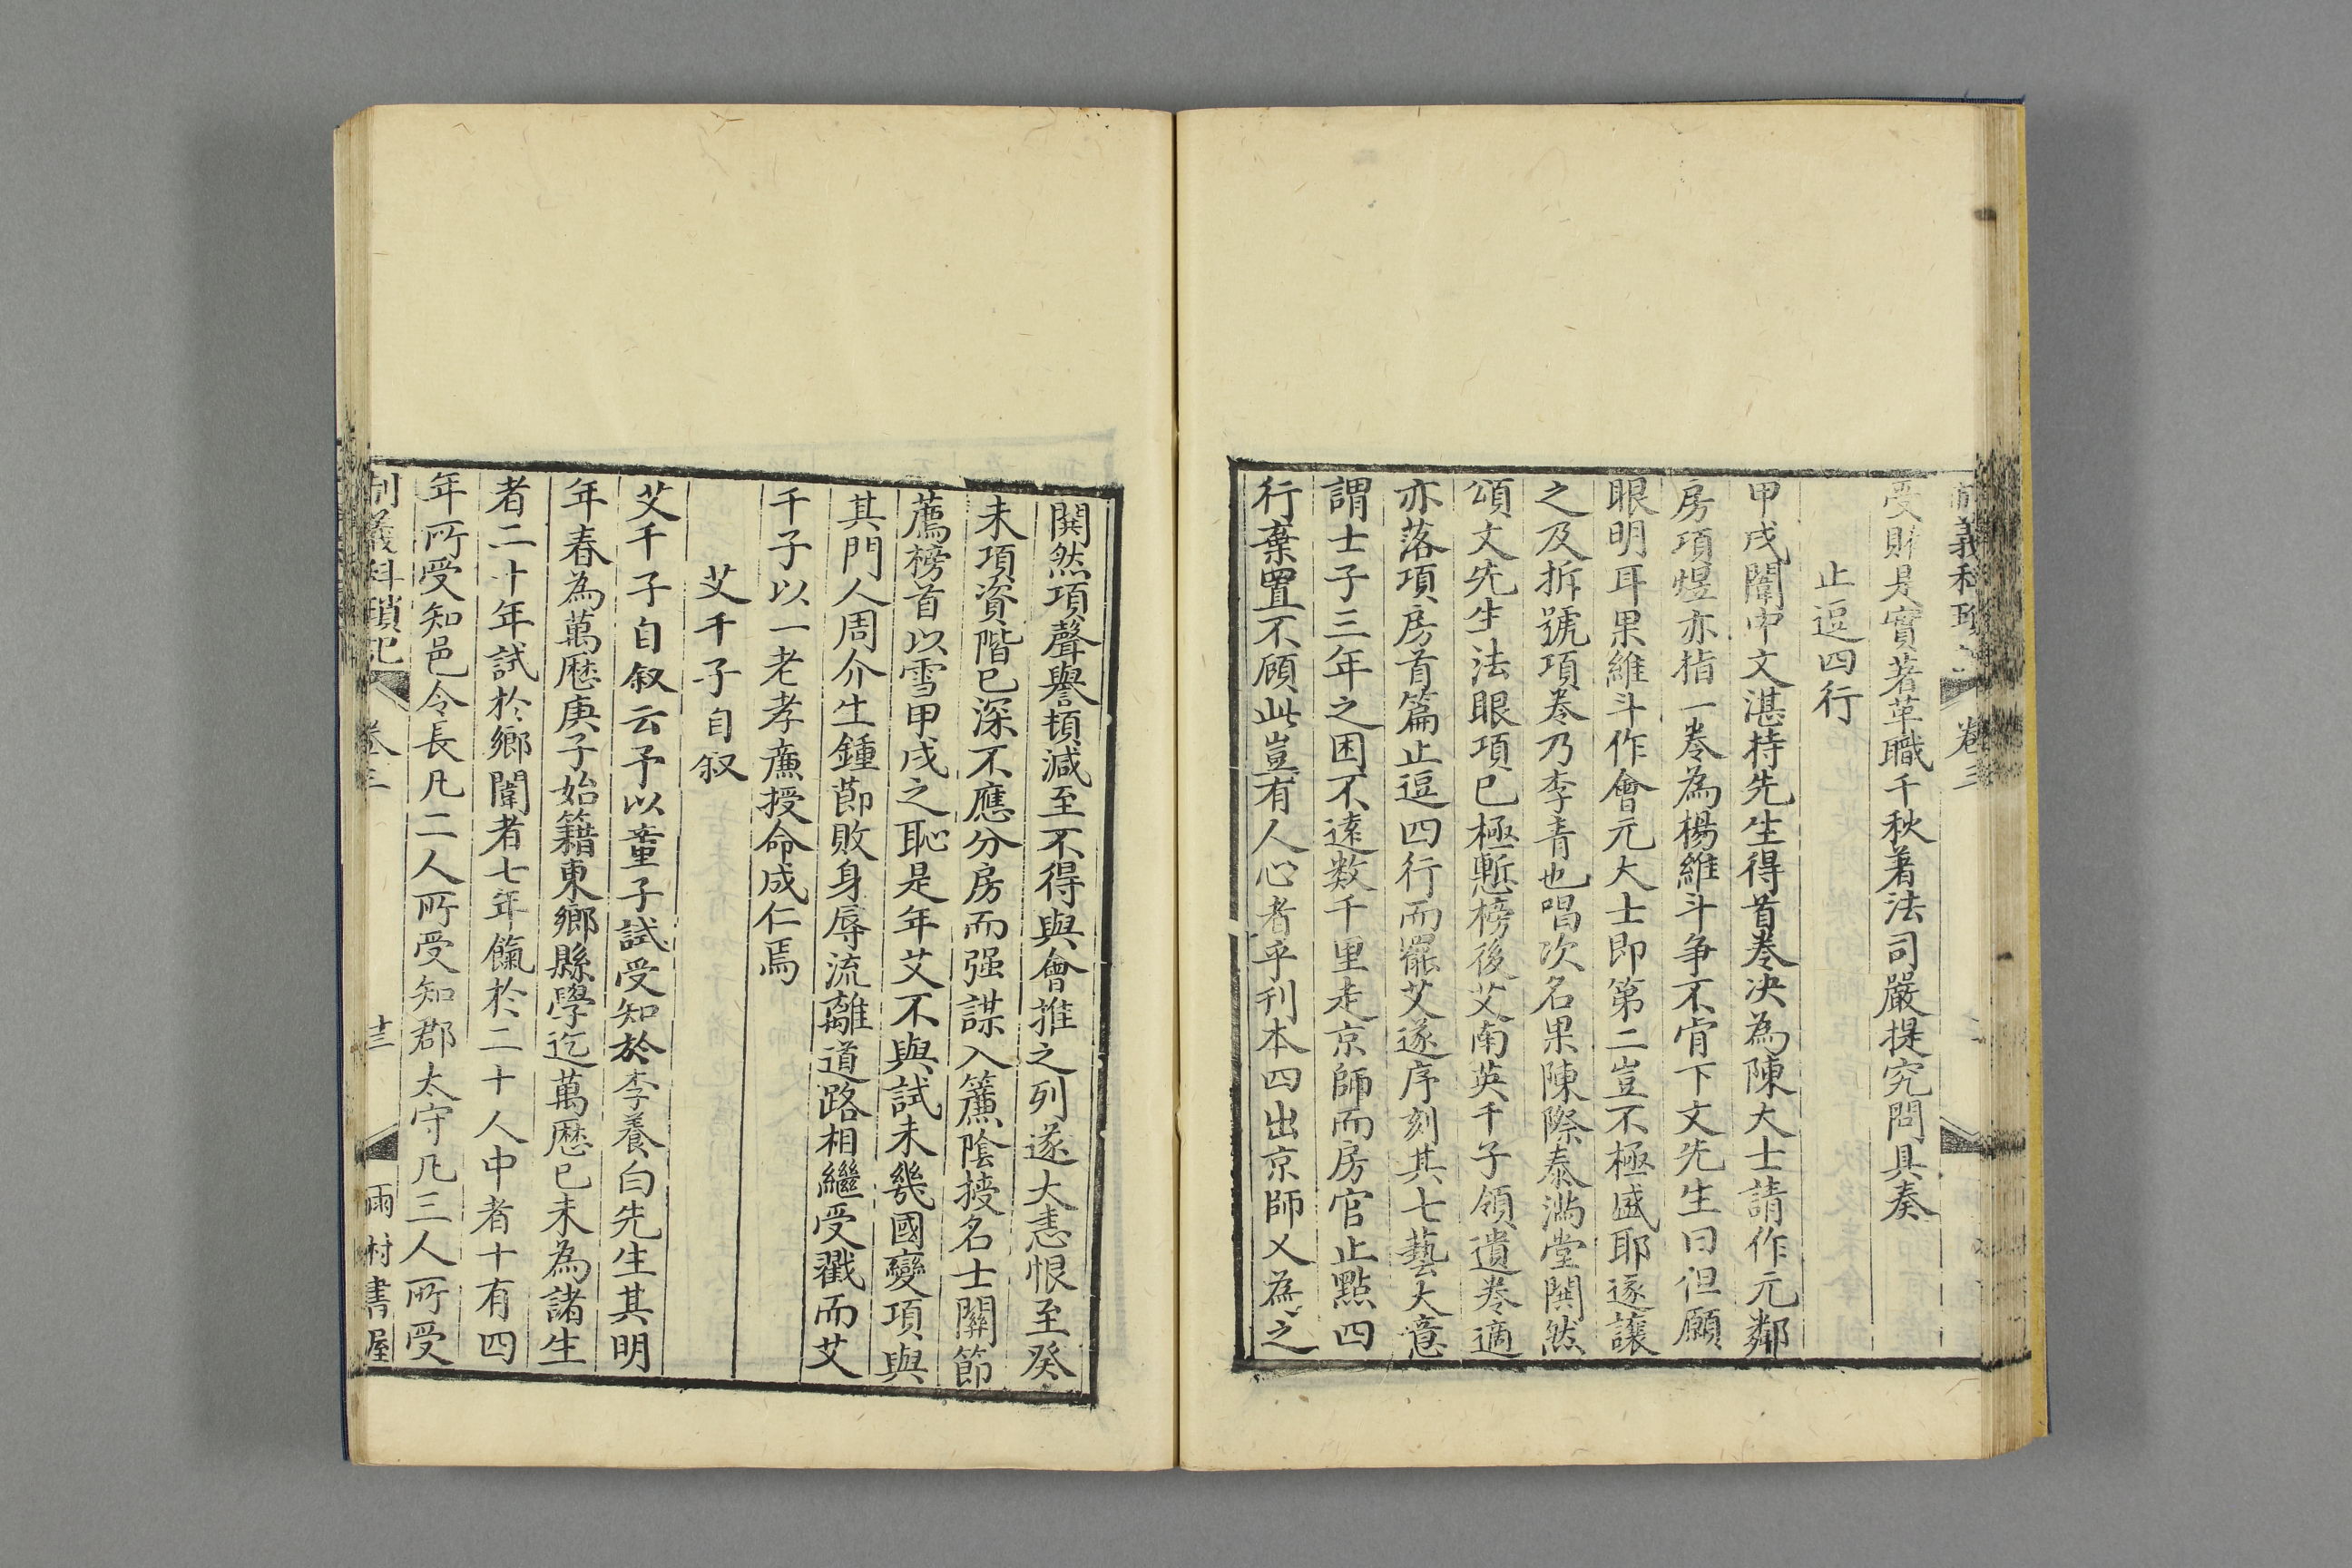 制義科瑣記 卷三
受財是實著革職千秋著法司嚴提究問具奏
止逗四行
甲戌闈中文湛持先生得首卷决為陳大士請作元鄰
房項煜亦指一卷為楊維斗争不肯下文先生曰但願
眼明耳果維斗作會元大士即第二豈不極盛耶遂讓
之及拆號項卷乃李青也唱次名果陳際泰滿堂鬨然
頌文先生法眼項已極慙榜後艾南英千子領遺卷適
亦落項房首篇止逗四行而罷艾遂序刻其七藝大意
謂士子三年之困不遠数千里走京師而房官止點四
行棄置不顧此豈有人心者乎刊本四出京師乂為之
鬨然項聲譽頓減至不得與會推之列遂大恚恨至癸
未項資階已深不應分房而强謀入簾陰授名士關節
薦榜首以雪甲戌之恥是年艾不與試未幾國變項與
其門人周介生鍾莭敗身辱流離道路相繼受戮而艾
千子以一老孝亷授命成仁焉
艾千子自叙
艾千子自叙云予以童子試受知於李養白先生其明
年春為萬厯庚子始籍東鄉縣學迄萬厯已未為諸生
者二十年試於鄉闈者七年餼於二十人中者十有四
年所受知邑令長凡二人所受知郡太守凡三人所受
制義科瑣記 卷三 十三 雨村書屋